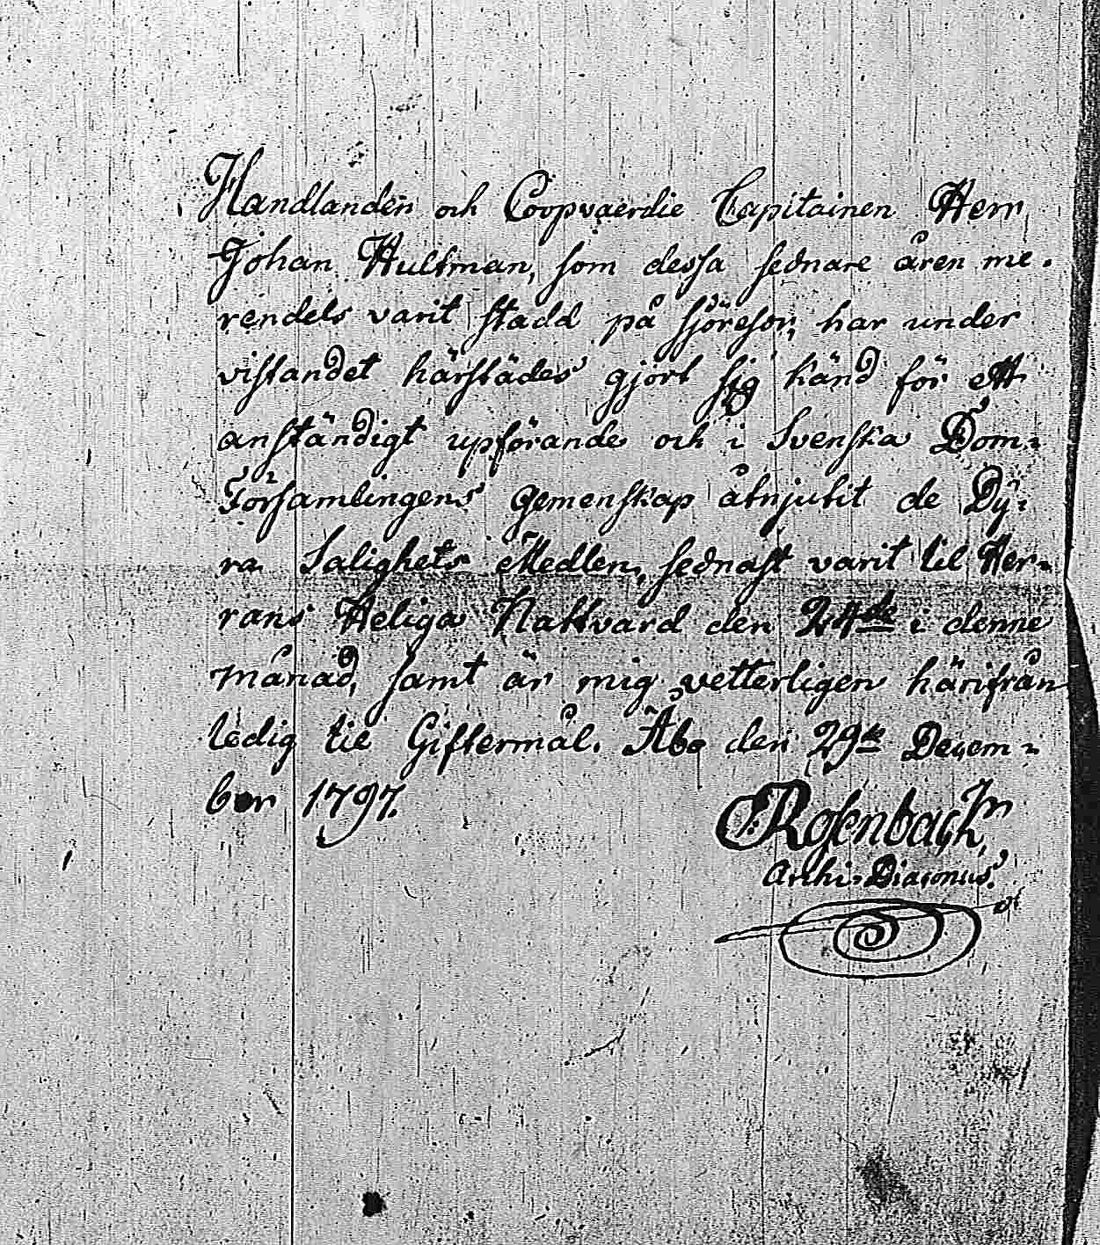 Handlanden och Coopvaerdie Capitainen Herr
Johan Hultman, som dessa sednare åren me-
rendels varit stadd på sjöresor, har under
vistandet härstädes gjort sig känd för ett
anständigt upförande och i Svenska Dom-
Församlingens gemenskap åtnjutit de Dy-
ra Salighets Medlen, sednast varit til Her-
rans Heliga Nattvard den 24de i denne
månad, samt är mig vetterligen härifrån
ledig til Giftermål. Åbo den 29de Decem-
ber 1797.
Rosenback
Archi-Diaconus.